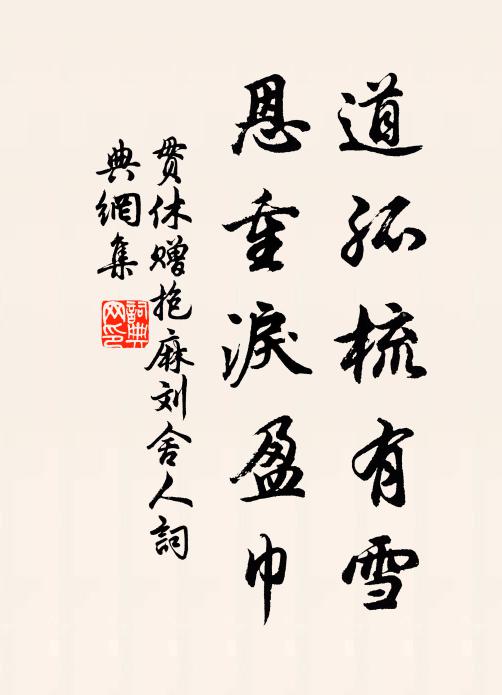 道孤梳有雪
恩重淚盈巾
贯休赠抱麻刘舍人詞
典網集
詞典
网印